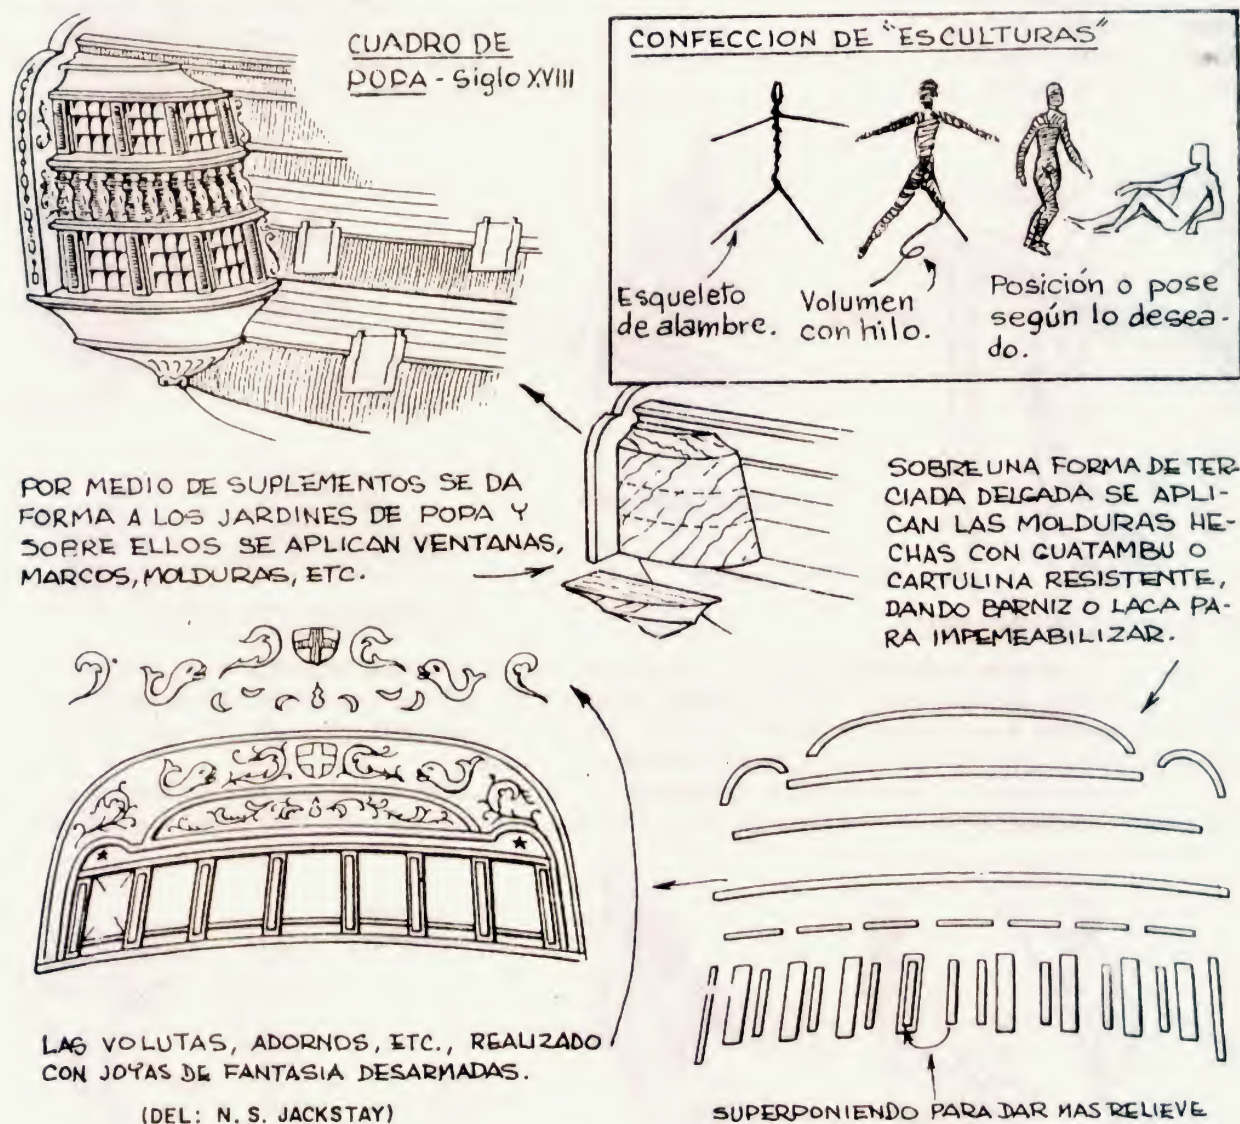 CUADRO DE
POPA - Siglo XVIII
CONFECCION DE "ESCULTURAS"
Esqueleto
de alambre.
Volumen
con hilo.
Posición o pose
según lo desea-
do.
POR MEDIO DE SUPLEMENTOS SE DA
FORMA A LOS JARDINES DE POPA Y
SOBRE ELLOS SE APLICAN VENTANAS,
MARCOS, MOLDURAS, ETC.
SOBRE UNA FORMA DE TER-
CIADA DELGADA SE APLI-
CAN LAS MOLDURAS HE-
CHAS CON GUATAMBU O
CARTULINA RESISTENTE,
DANDO BARNIZ O LACA PA-
RA IMPEMEABILIZAR.
LAS VOLUTAS, ADORNOS, ETC., REALIZADO
CON JOYAS DE FANTASIA DESARMADAS.
(DEL: N. S. JACKSTAY)
SUPERPONIENDO PARA DAR MAS RELIEVE